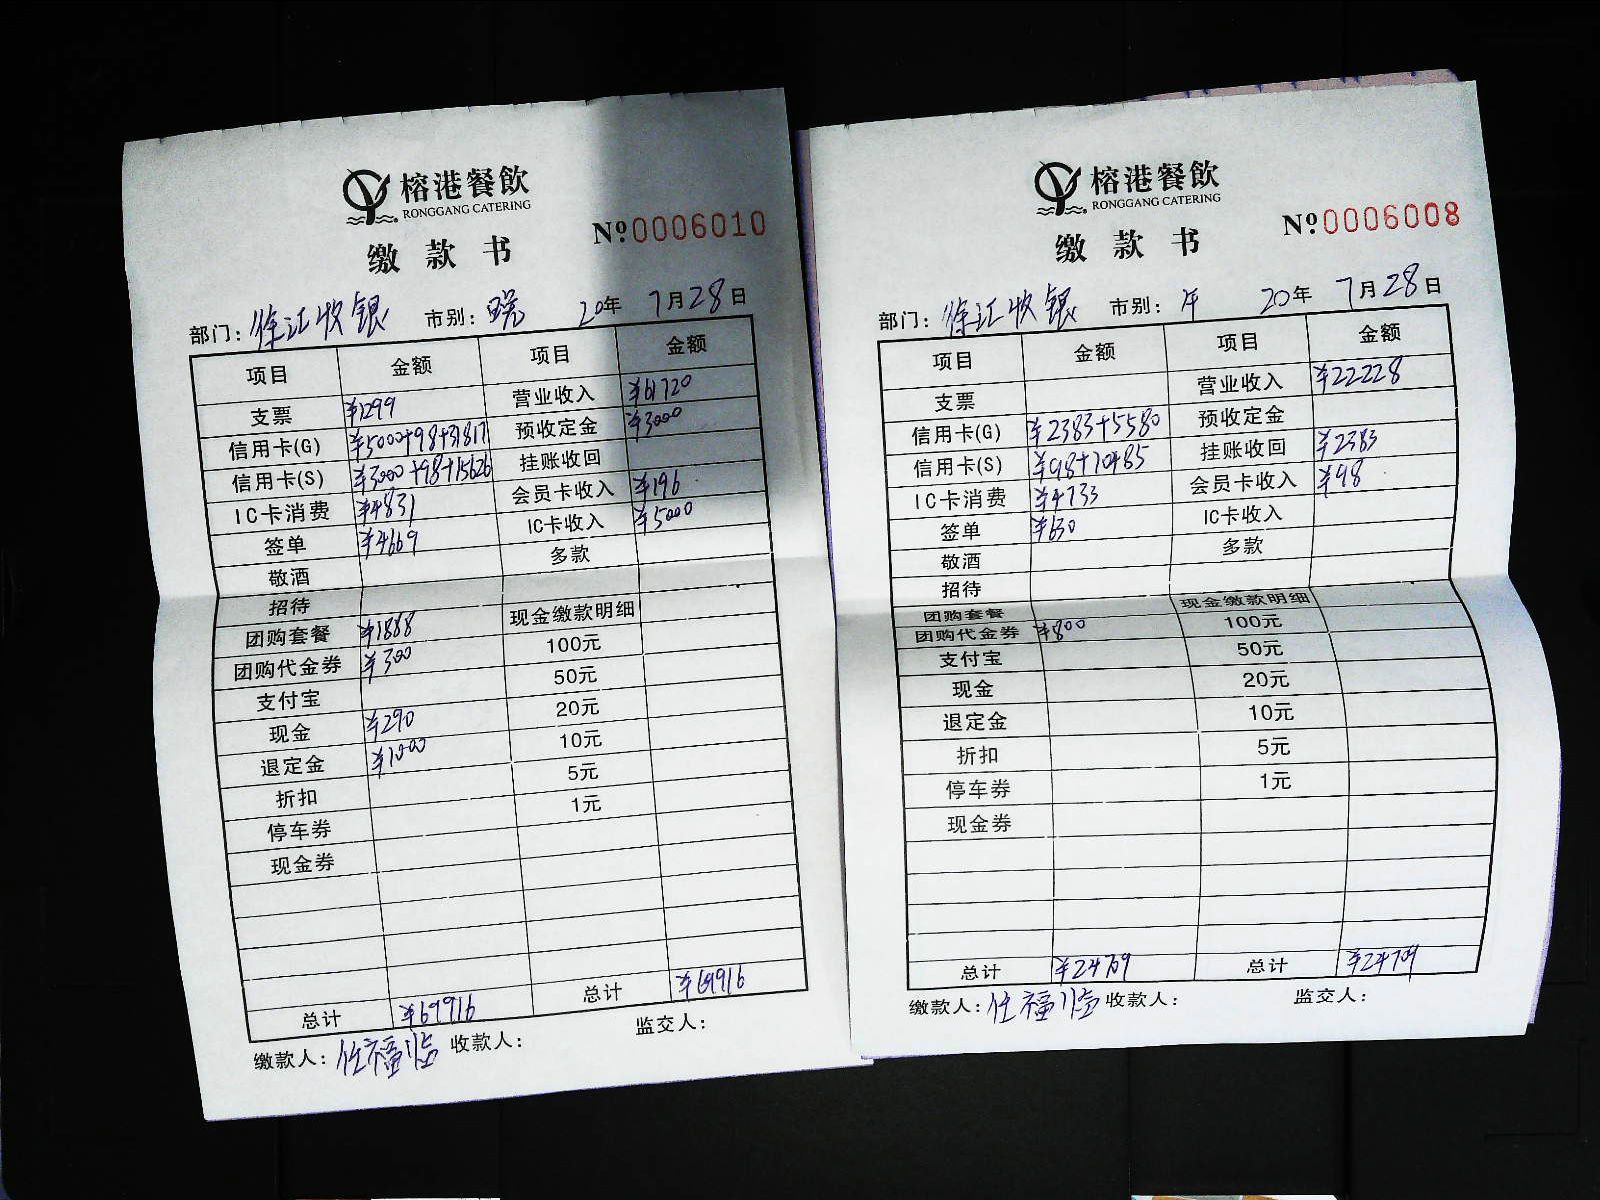 榕港餐飲
RONGGANG CATERING
缴款书
№0006010
部门: 徐汇收银 市别: 晚 20年 7月28日
项目 金额 项目 金额
支票 ¥1299 营业收入 ¥61720
信用卡(G) ¥5000+98+31817 预收定金 ¥3000
信用卡(S) ¥3000+98+15626 挂账收回
IC卡消费 ¥4831 会员卡收入 ¥196
签单 ¥4669 IC卡收入 ¥5000
敬酒 多款
招待
团购套餐 ¥1888 现金缴款明细
团购代金券 ¥300 100元
支付宝 50元
现金 ¥290 20元
退定金 ¥1000 10元
折扣 5元
停车券 1元
现金券
总计 ¥69916 总计 ¥69916
缴款人: 任福临 收款人: 监交人:
榕港餐飲
RONGGANG CATERING
缴款书
№0006008
部门: 徐汇收银 市别: 午 20年 7月28日
项目 金额 项目 金额
支票 营业收入 ¥22228
信用卡(G) ¥2383+5580 预收定金
信用卡(S) ¥98+10485 挂账收回 ¥2383
IC卡消费 ¥4733 会员卡收入 ¥98
签单 ¥630 IC卡收入
敬酒 多款
招待
团购套餐 现金缴款明细
团购代金券 ¥800 100元
支付宝 50元
现金 20元
退定金 10元
折扣 5元
停车券 1元
现金券
总计 ¥24709 总计 ¥24709
缴款人: 任福临 收款人: 监交人: